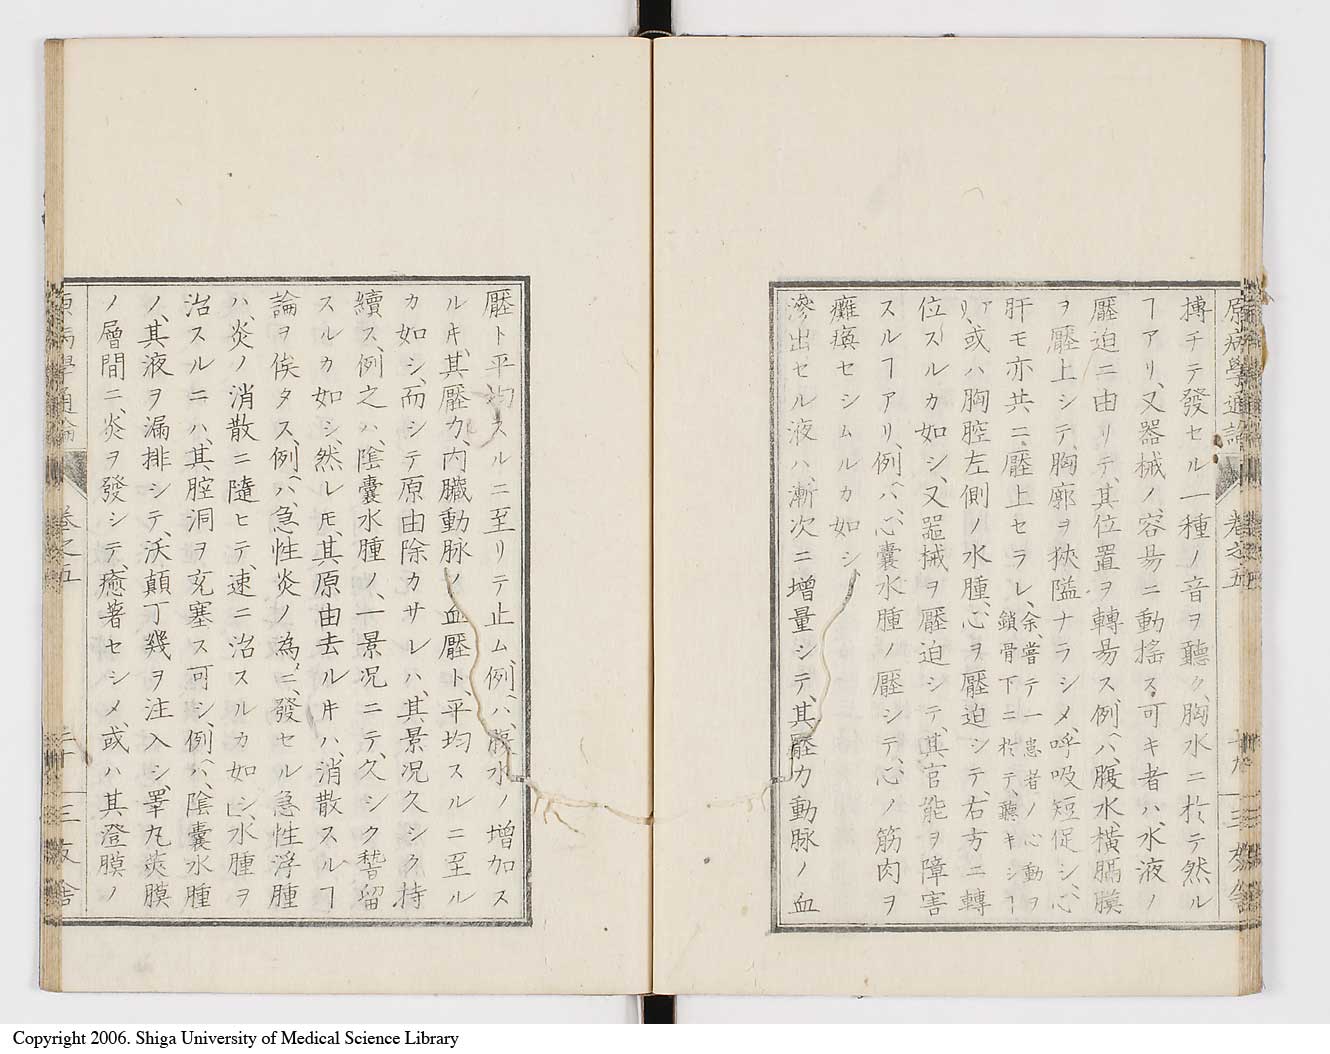 原病學通論 卷之五 十九 三友舍
搏チテ發セル一種ノ音ヲ聽ク、胸水ニ於テ然ル
ヿアリ、又器械ノ、容易ニ動搖ス可キ者ハ、水液ノ
壓迫ニ由リテ、其位置ヲ轉易ス、例ヘハ、腹水、橫膈膜
ヲ壓上シテ、胸廓ヲ狹隘ナラシメ、呼吸短促シ、心
肝モ亦共ニ壓上セラレ、余、嘗テ一患者ノ心動ヲ鎖骨下ニ於テ、聽キシヿ
アリ、或ハ胸腔左側ノ水腫、心ヲ壓迫シテ、右方ニ轉
位スルカ如シ、又器械ヲ壓迫シテ、其官能ヲ障害
スルヿアリ、例ヘハ、心囊水腫ノ壓シテ、心ノ筋肉ヲ
癱瘓セシムルカ如シ、
滲出セル液ハ、漸次ニ增量シテ、其壓力動脈ノ血
壓ト平均スルニ至リテ止ム、例ヘハ、腹水ノ增加ス
ルキ、其壓力、內臟動脈ノ血壓ト、平均スルニ至ル
カ如シ、而シテ原由除カサレハ、其景况久シク持
續ス、例之ハ、陰囊水腫ノ、一景况ニテ、久シク瞀留
スルカ如シ、然レ𪜈、其原由去ルキハ、消散スルヿ
論ヲ俟タス、例ヘハ、急性炎ノ為メニ、發セル急性浮腫
ハ、炎ノ消散ニ隨ヒテ、速ニ治スルカ如シ、水腫ヲ
治スルニハ、其腔洞ヲ充塞ス可シ、例ヘハ、陰囊水腫
ノ、其液ヲ漏排シテ、沃顛丁幾ヲ注入シ、睪丸莢膜
ノ層間ニ、炎ヲ發シテ、癒著セシメ、或ハ其澄膜ノ
原病學通論 卷之五 二十 三友舍